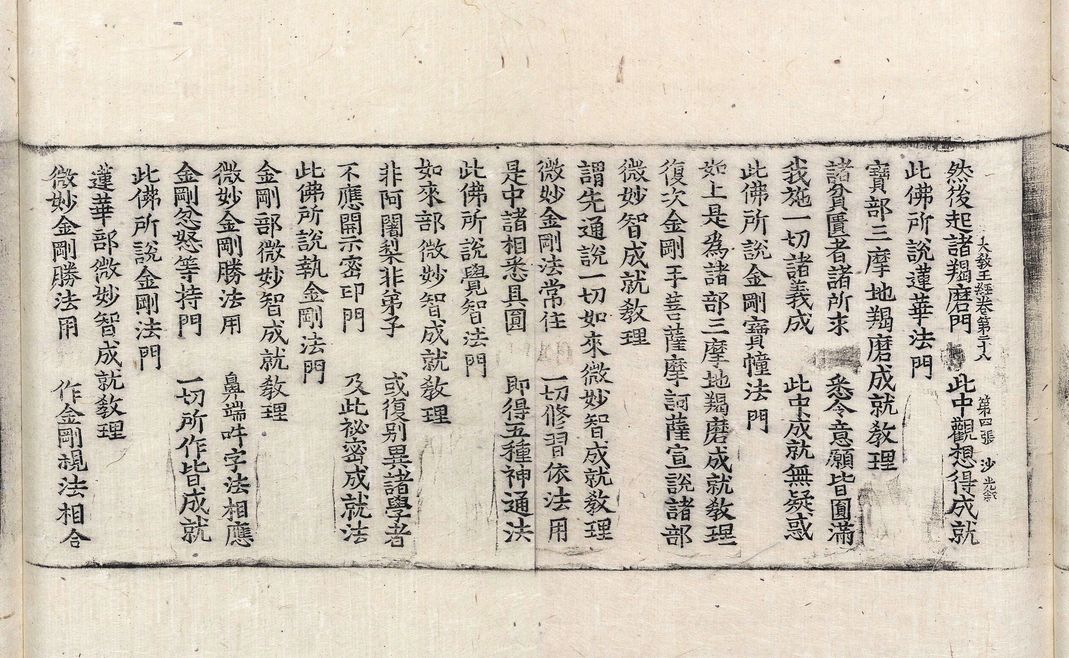 然後起諸羯磨門　此中觀想得成就
大教王經卷第二十八　第四張　沙
此佛所說蓮華法門
寶部三摩地羯磨成就教理
諸貧匱者諸所求　悉令意願皆圓滿
我施一切諸義成　此中成就無疑惑
此佛所說金剛寶幢法門
如上是為諸部三摩地羯磨成就教理
復次金剛手菩薩摩訶薩宣說諸部
微妙智成就教理
謂先通說一切如來微妙智成就教理
微妙金剛法常住　一切修習依法用
是中諸相悉具圓　即得五種神通法
此佛所說覺智法門
如來部微妙智成就教理
非阿闍梨非弟子　或復別異諸學者
不應開示密印門　及此祕密成就法
此佛所說執金剛法門
金剛部微妙智成就教理
微妙金剛勝法用　鼻端吽字法相應
金剛忿怒等持門　一切所作皆成就
此佛所說金剛法門
蓮華部微妙智成就教理
微妙金剛勝法用　作金剛槻法相合